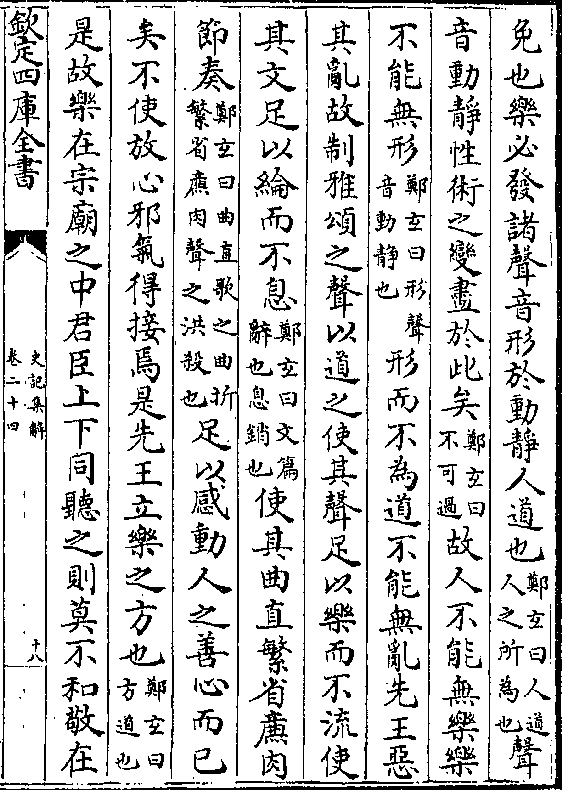 免也樂必發諸聲音形於動靜人道也鄭玄曰人道人之所為也聲
音動靜性術之變盡於此矣鄭玄曰不可過故人不能無樂樂
不能無形鄭玄曰形聲音動靜也形而不為道不能無亂先王惡
其亂故制雅頌之聲以道之使其聲足以樂而不流使
其文足以綸而不息鄭玄曰文篇辭也息銷也使其曲直繁省廉肉
節奏鄭玄曰曲直歌之曲折繁省廉肉聲之洪殺也足以感動人之善心而已
矣不使放心邪氣得接焉是先王立樂之方也鄭玄曰方道也
是故樂在宗廟之中君臣上下同聽之則莫不和敬在
欽定四庫全書
史記集解
卷二十四
十八